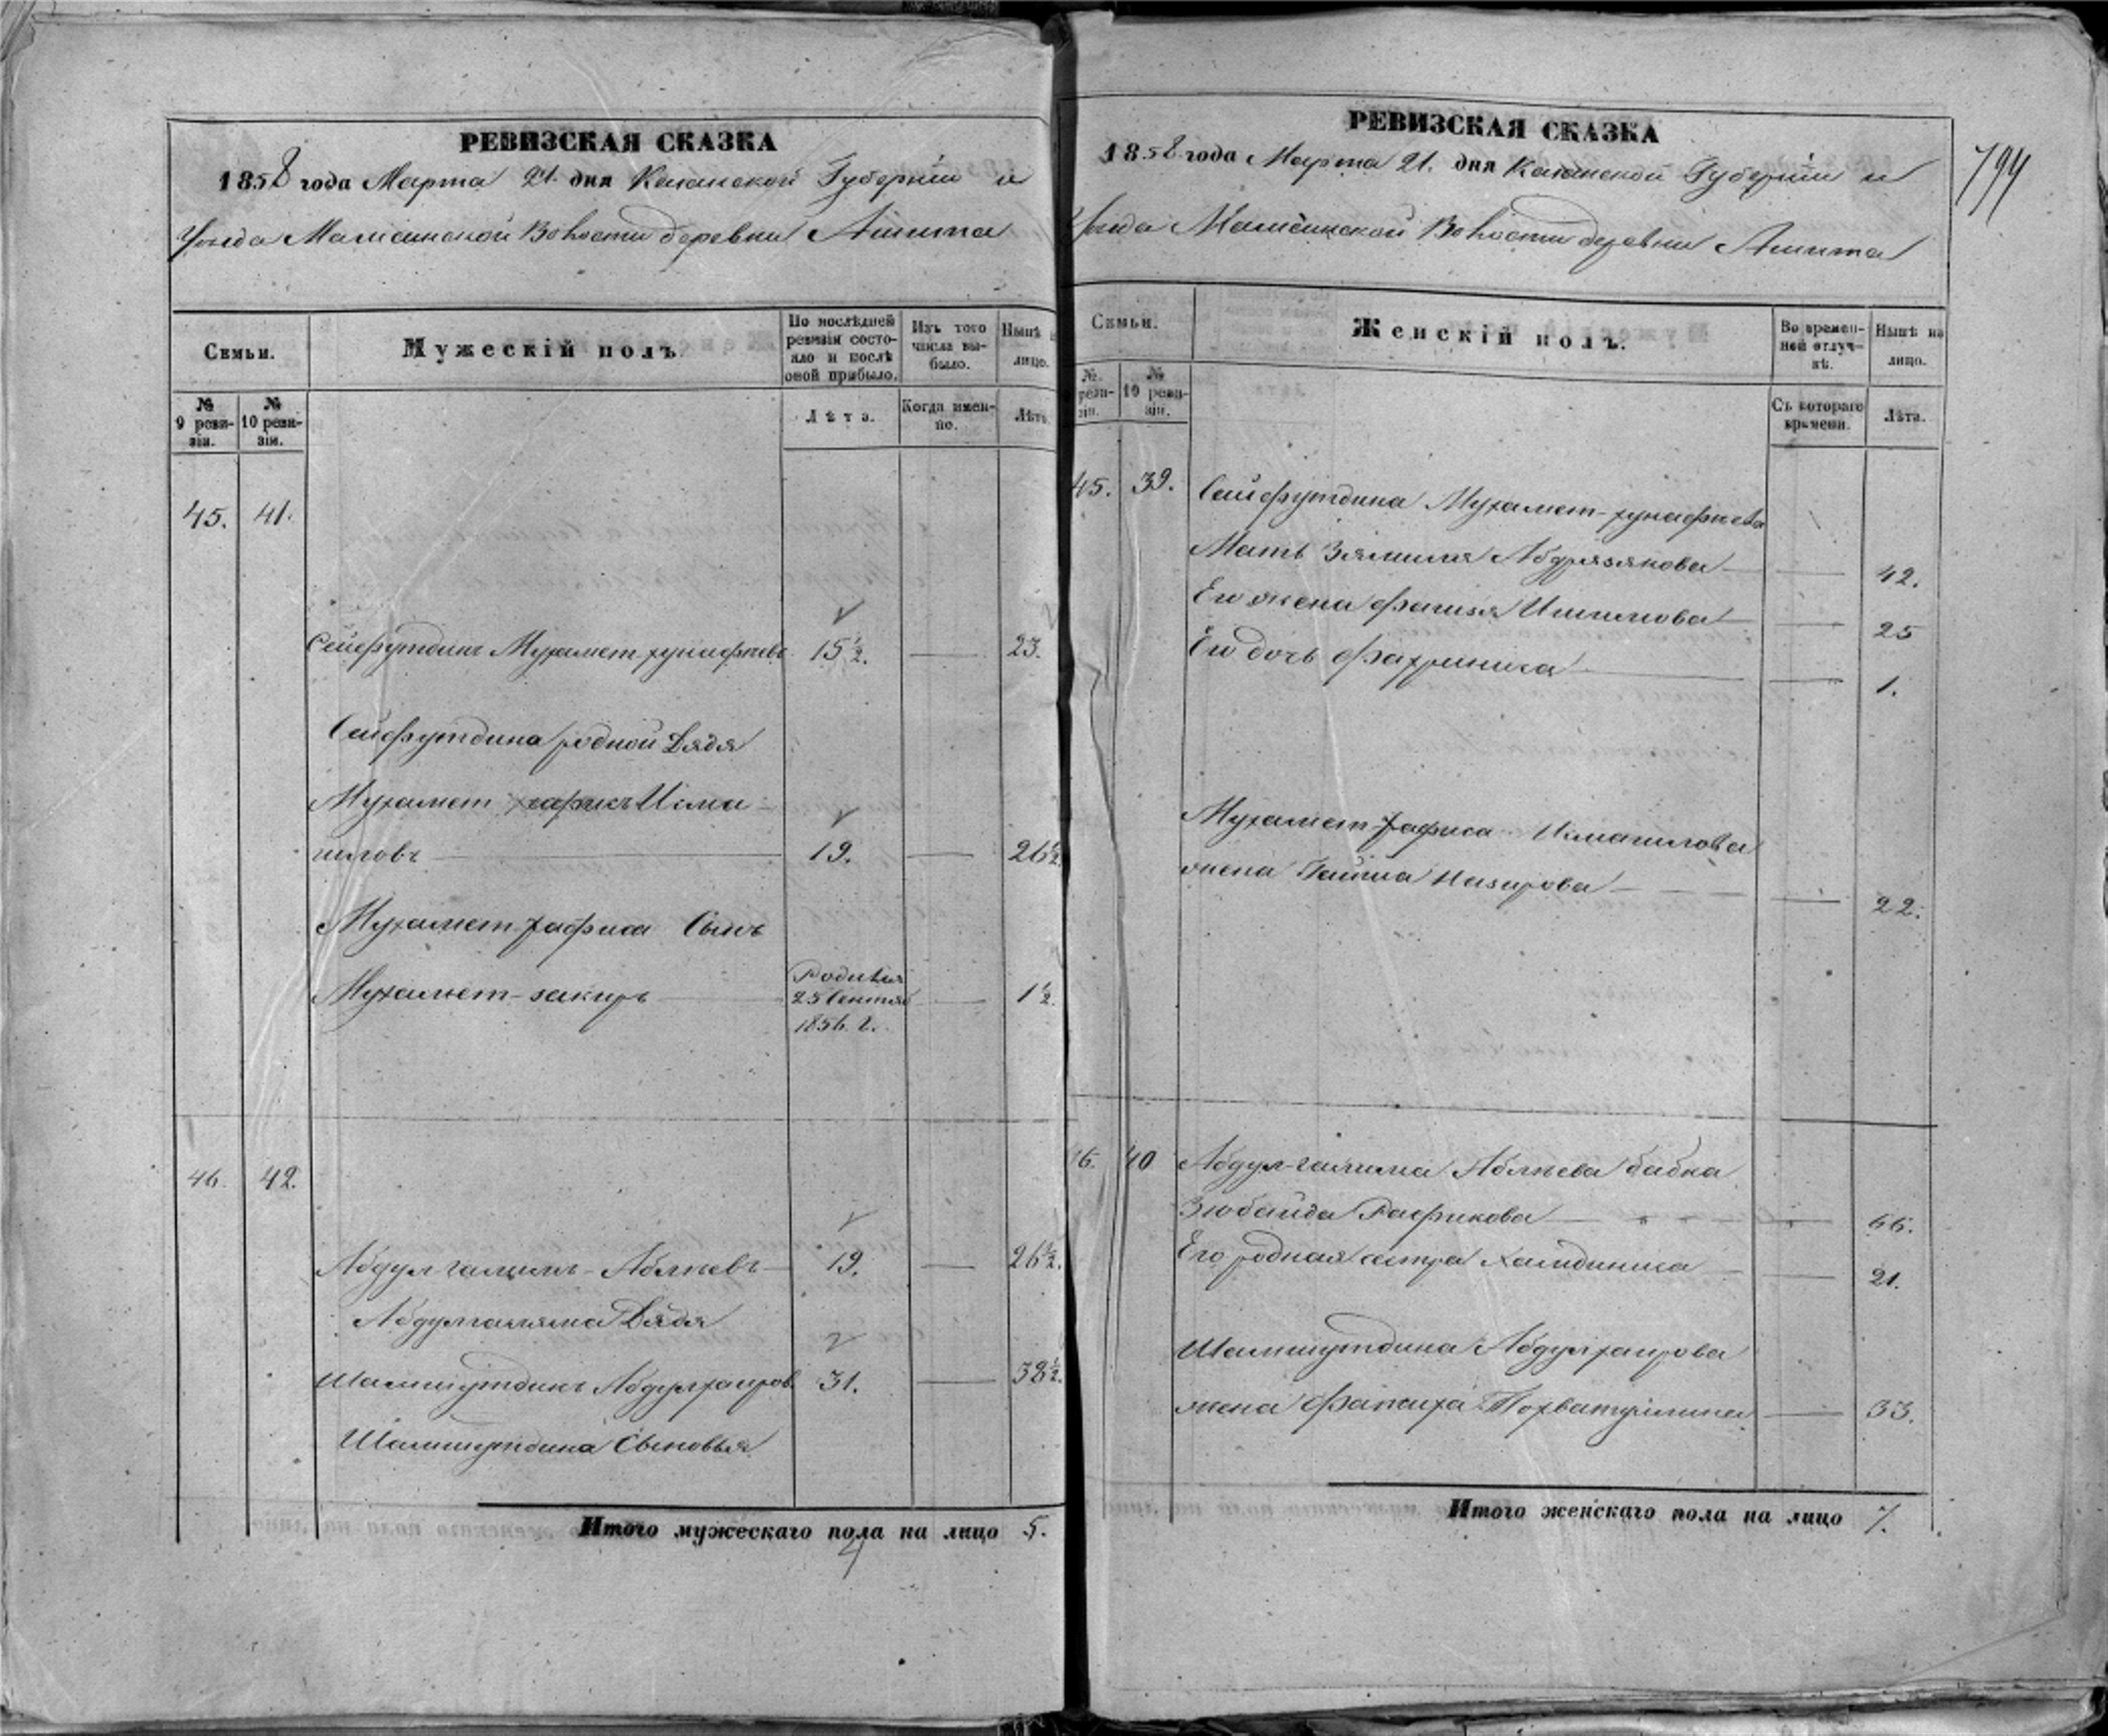 РЕВИЗСКАЯ СКАЗКА
1858 года Марта 21. дня Казанской Губерніи и
Уезда Мамсинской Волости деревни Ашита
Семьи.
Мужескій полъ.
По послѣдней ревизіи состояло и послѣ оной прибыло.
Изъ того числа выбыло.
Нынѣ на лицо.
№ 9 ревизіи.
№ 10 ревизіи.
Лѣта.
Когда именно.
Лѣта.
45. 41.
Сейфутдинъ Мухамет-хунафиевъ 15½. — 23.
Сайфутдина родной Дядя
Мухамет Исма-
иловъ — 19. — 26½.
Мухамет Сынъ
Мухамет-закиръ — Родился 25 Сентяб 1856. г. — 1½.
46. 42.
Абдул-галимъ Аблиевъ — 19. — 26½.
Дядя
Шамшутдинъ Абдулхаиров 31. — 38½.
Шамшутдина Сыновья
Итого мужескаго пола на лицо 5.
4
РЕВИЗСКАЯ СКАЗКА
1858 года Марта 21. дня Казанской Губерніи и
Уезда Мамсинской Волости деревни Ашита
794
Семьи.
Женскій полъ.
Во временной отлучкѣ.
Нынѣ на лицо.
№ ревизіи.
№ 10 ревизіи.
Съ котораго времени.
Лѣта.
45. 39. Сайфутдина Мухамет-хунафиева
Мать Абдрязякова — 42.
Его жена — 25
Его дочь — 1.
Мухамет Исмаилова
жена Назирова — 22.
46. 40 Абдул-галима Аблиева бабка
Зюбайда Рафикова — 66.
Его родная сестра — 21.
Шамшутдина Абдулхаирова
жена Фатиха — 33.
Итого женскаго пола на лицо 7.